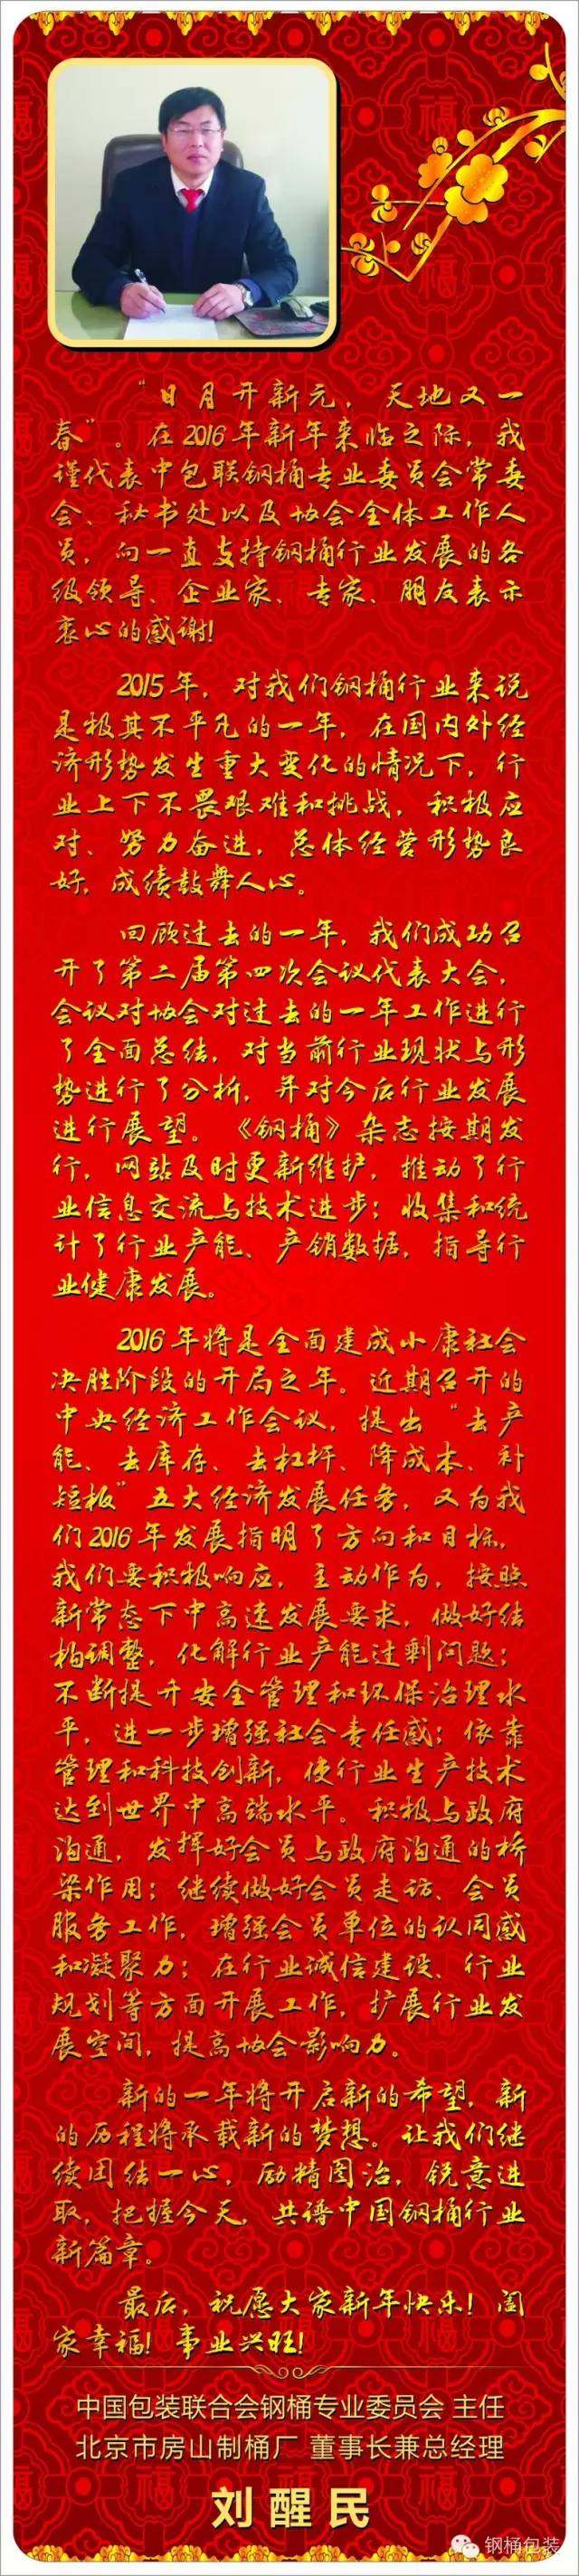 “日月开新元，天地又一
春”。在2016年新年来临之际，我
谨代表中包联钢桶专业委员会常委
会、秘书处以及协会全体工作人
员，向一直支持钢桶行业发展的各
级领导、企业家、专家、朋友表示
衷心的感谢!
2015年，对我们钢桶行业来说
是极其不平凡的一年，在国内外经
济形势发生重大变化的情况下，行
业上下不畏艰难和挑战，积极应
对、努力奋进，总体经营形势良
好，成绩鼓舞人心。
回顾过去的一年，我们成功召
开了第二届第四次会议代表大会，
会议对协会对过去的一年工作进行
了全面总结，对当前行业现状与形
势进行了分析，并对今后行业发展
进行展望。《钢桶》杂志按期发
行，网站及时更新维护，推动了行
业信息交流与技术进步；收集和统
计了行业产能、产销数据，指导行
业健康发展。
2016年将是全面建成小康社会
决胜阶段的开局之年。近期召开的
中央经济工作会议，提出“去产
能、去库存、去杠杆、降成本、补
短板”五大经济发展任务，又为我
们2016年发展指明了方向和目标，
我们要积极响应，主动作为，按照
新常态下中高速发展要求，做好结
构调整，化解行业产能过剩问题；
不断提升安全管理和环保治理水
平，进一步增强社会责任感；依靠
管理和科技创新，使行业生产技术
达到世界中高端水平。积极与政府
沟通，发挥好会员与政府沟通的桥
梁作用；继续做好会员走访、会员
服务工作，增强会员单位的认同感
和凝聚力；在行业诚信建设、行业
规划等方面开展工作，扩展行业发
展空间，提高协会影响力。
新的一年将开启新的希望，新
的历程将承载新的梦想。让我们继
续团结一心，励精图治，锐意进
取，把握今天，共谱中国钢桶行业
新篇章。
最后，祝愿大家新年快乐！阖
家幸福！事业兴旺！
中国包装联合会钢桶专业委员会 主任
北京市房山制桶厂 董事长兼总经理
刘醒民
钢桶包装